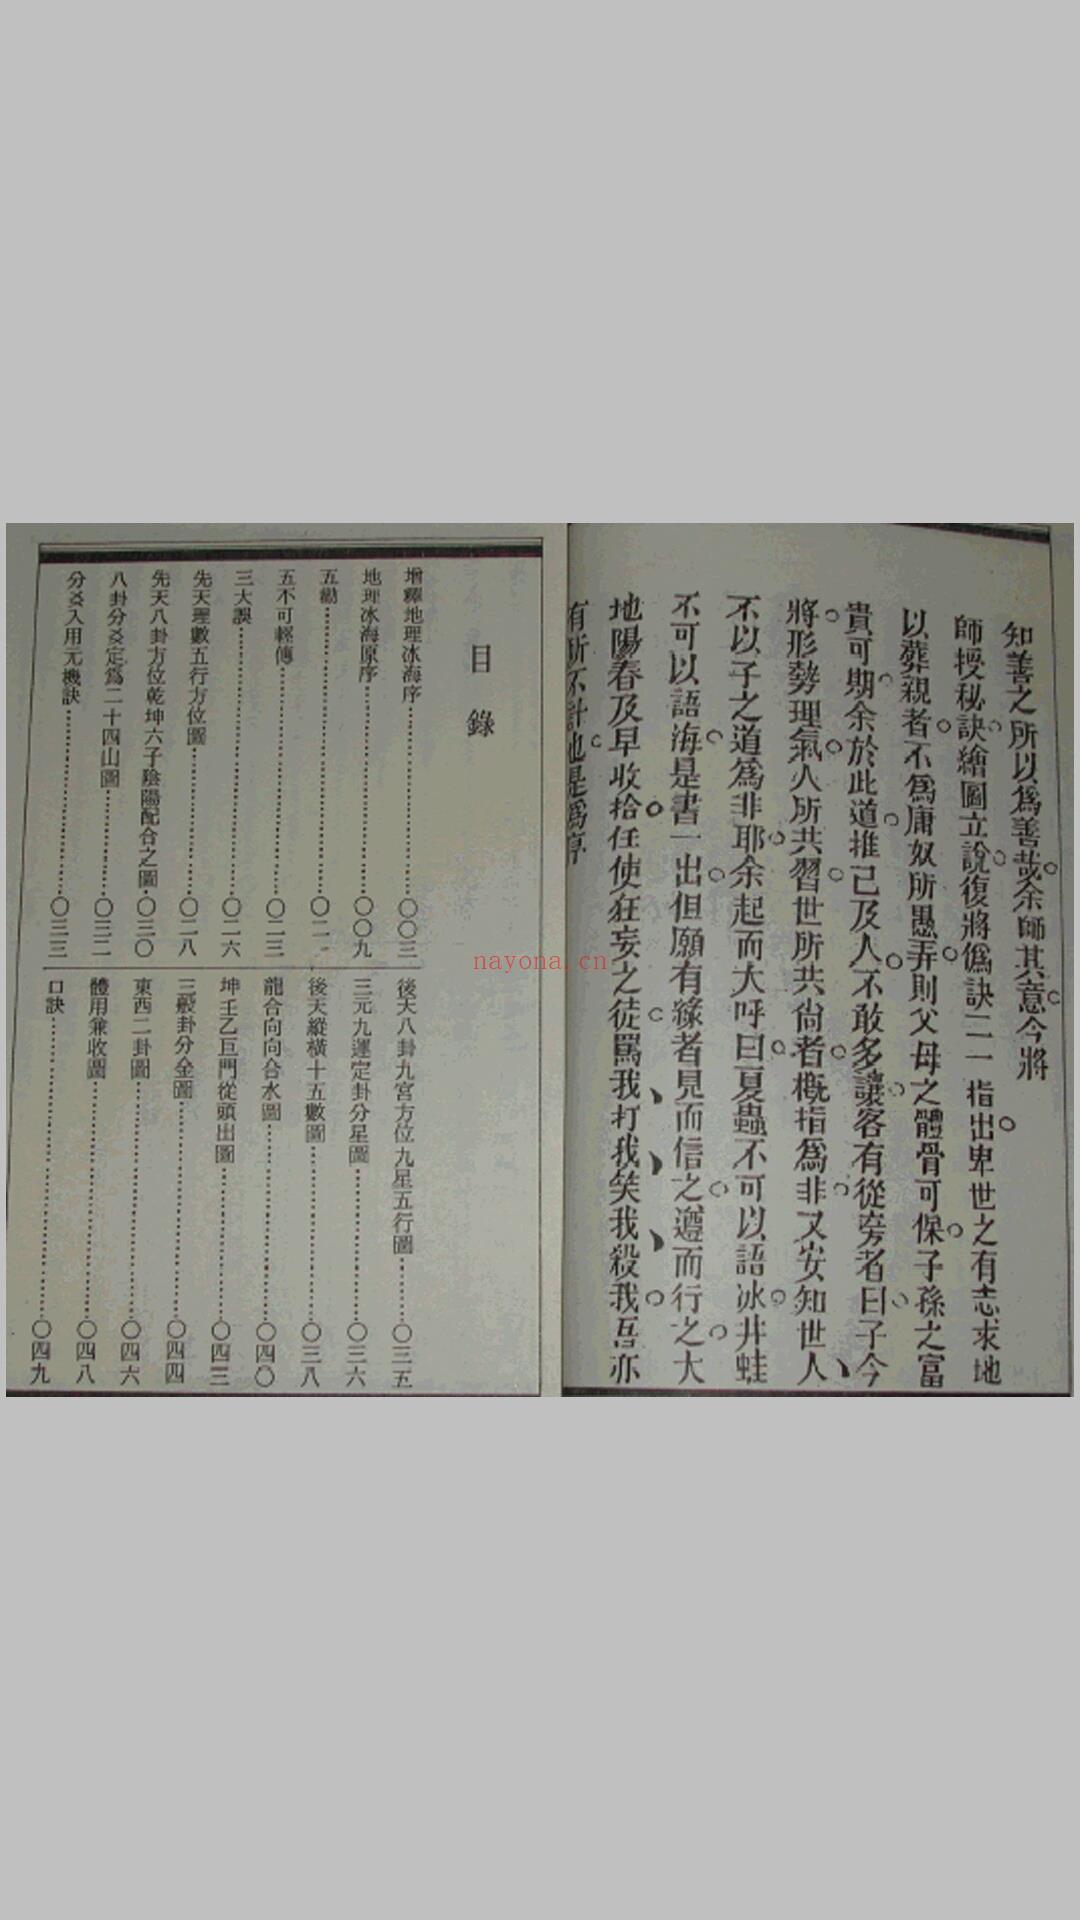 知善之所以爲善哉余師其意今將
師授秘訣繪圖立說復將僞訣一一指出卑世之有志求地
以葬親者不爲庸奴所愚弄則父母之體骨可保子孫之富
貴可期余於此道推己及人不敢多讓客有從旁者曰子今
將形勢理氣人所共習世所共尙者槪指爲非又安知世人
不以子之道爲非耶余起而大呼曰夏蟲不可以語冰井蛙
不可以語海是書一出但願有緣者見而信之遵而行之大
地陽春及早收拾任使狂妄之徒罵我打我笑我殺我吾亦
有所不計也是爲序
目錄
增釋地理冰海序 〇〇三
地理冰海原序 〇〇九
五勸 〇二一
五不可輕傳 〇二三
三大誤 〇二六
先天理數五行方位圖 〇二八
先天八卦方位乾坤六子陰陽配合之圖 〇三〇
八卦分爻定爲二十四山圖 〇三二
分爻入用元機訣 〇三三
後天八卦九宮方位九星五行圖 〇三五
三元九運定卦分星圖 〇三六
後天縱橫十五數圖 〇三八
龍合向向合水圖 〇四〇
坤壬乙巨門從頭出圖 〇四三
三般卦分金圖 〇四四
東西二卦圖 〇四六
體用兼收圖 〇四八
口訣 〇四九
nayona.cn